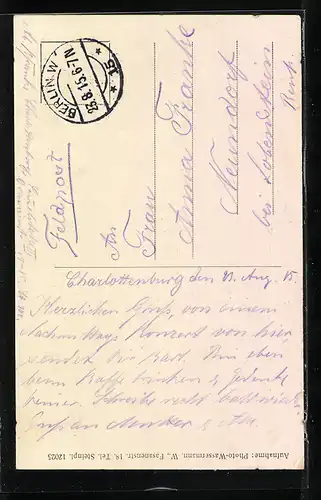 BERLIN.W.
23.8.15.6-7N.
* 15 *
Feldpost
An
Frau
Anna Franke
Neundorf
bei Lobenstein
Reuß.
Charlottenburg den 23. Aug. 15.
Herzlichen Gruß, von einem
Nachmittags Konzert von hier,
sendet Dir Karl. Bin eben
beim Kaffe trinken & gedenke
Deiner. Schreibe recht bald wieder
Gruß an Mutter &
Aufnahme: Photo-Wassermann. W., Fasanenstr. 18. Tel. Steinpl. 12025